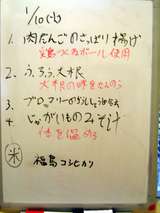 1/10(火)
1. 肉だんごのさっぱり揚げ
鶏つみボール使用
2. ふろふき大根
大根の味をたのしむ
3. ブロッコリーのからし醤油和え
4 じゃがいものみそ汁
体を温める
米 福島コシヒカリ